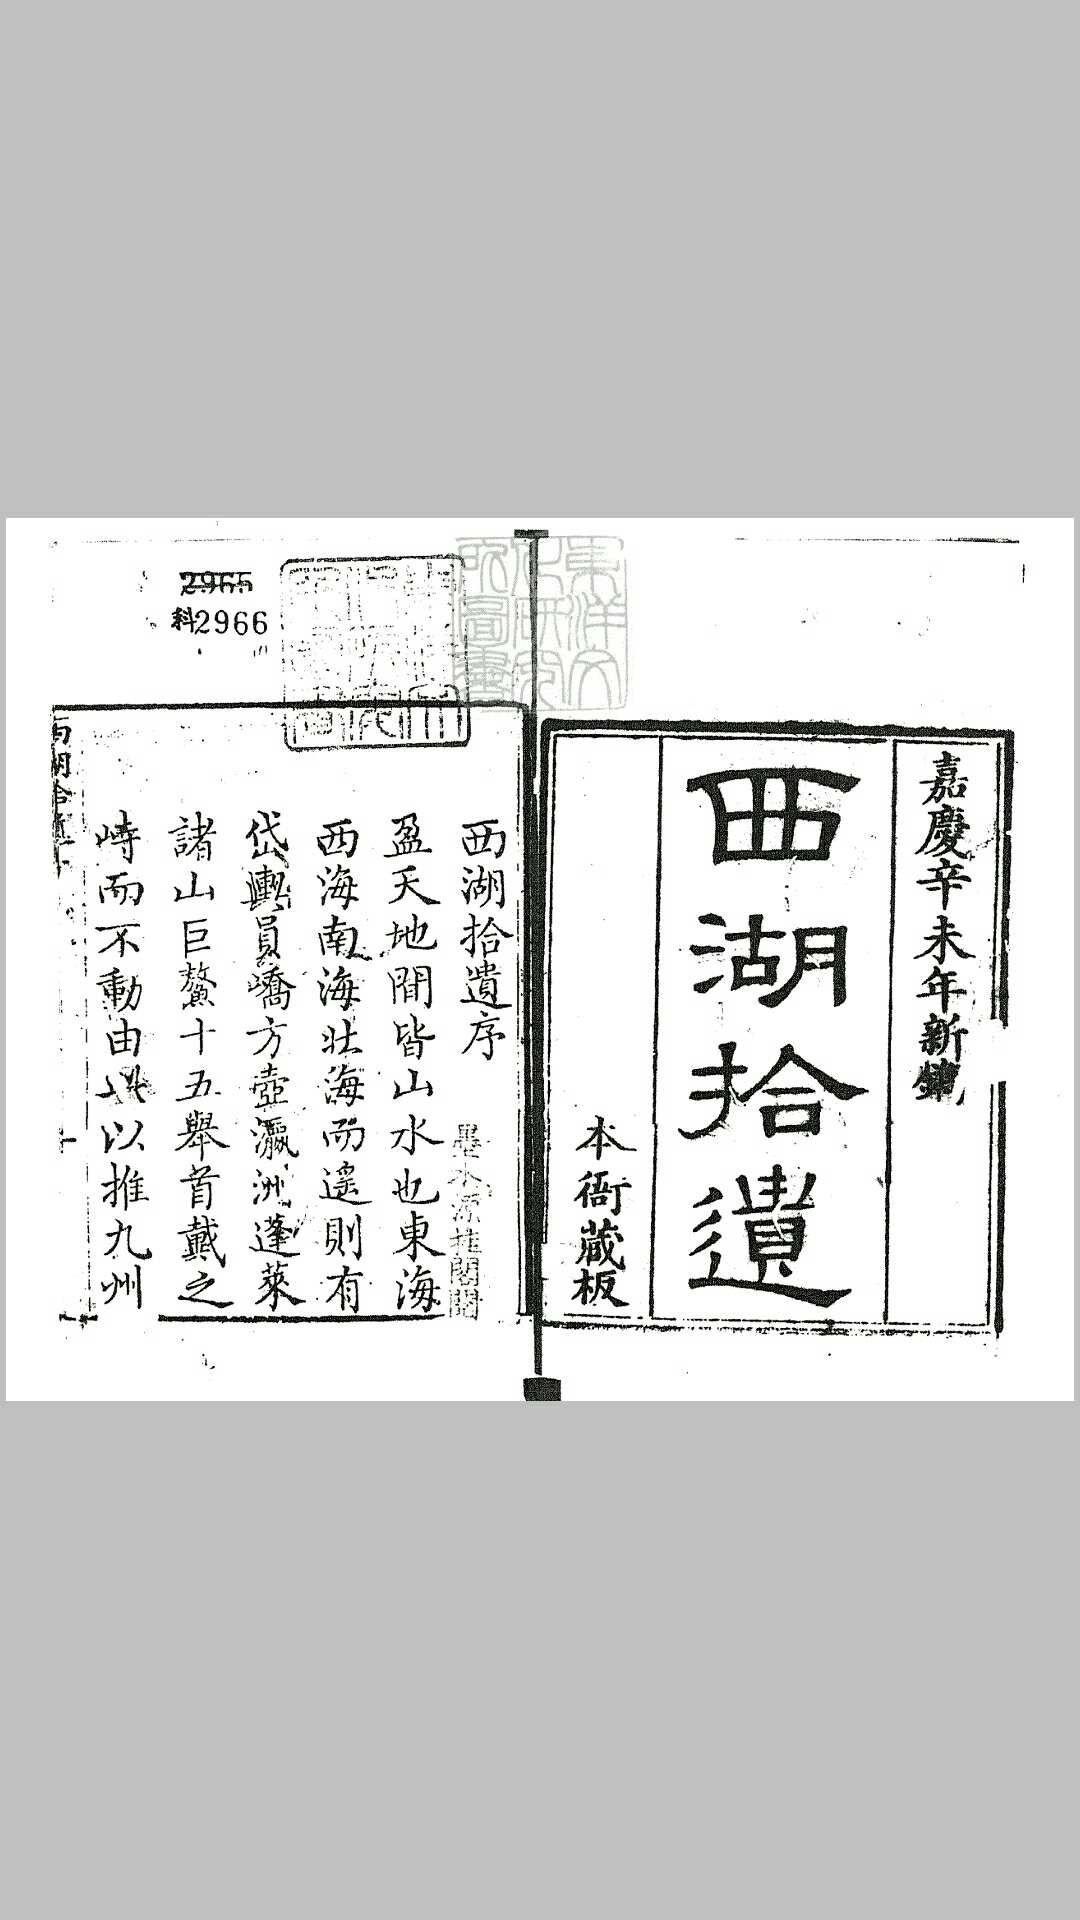 嘉慶辛未年新鐫
西湖拾遺
本衙藏板
2965
科2966
東洋文
化研究
所圖書
西湖拾遺序
盈天地間皆山水也東海
西海南海北海而遙則有
岱輿員嶠方壺瀛洲蓬萊
諸山巨鰲十五舉首戴之
峙而不動由此以推九州
西湖拾遺